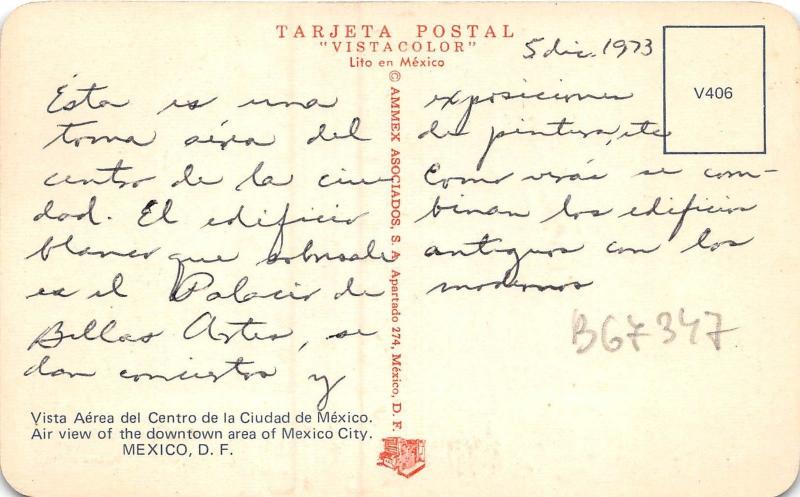 TARJETA POSTAL
"VISTACOLOR"
Lito en México
5 dic. 1973
V406
Ésta es una
toma aérea del
centro de la ciu
dad. El edificio
blanco que sobresale
es el Palacio de
Bellas Artes, se
dan conciertos y
exposiciones
de pintura, etc
Como verás se com-
binan los edificios
antiguos con los
modernos
B67347
© AMMEX ASOCIADOS, S. A. Apartado 274, México, D. F.
Vista Aérea del Centro de la Ciudad de México.
Air view of the downtown area of Mexico City.
MEXICO, D. F.